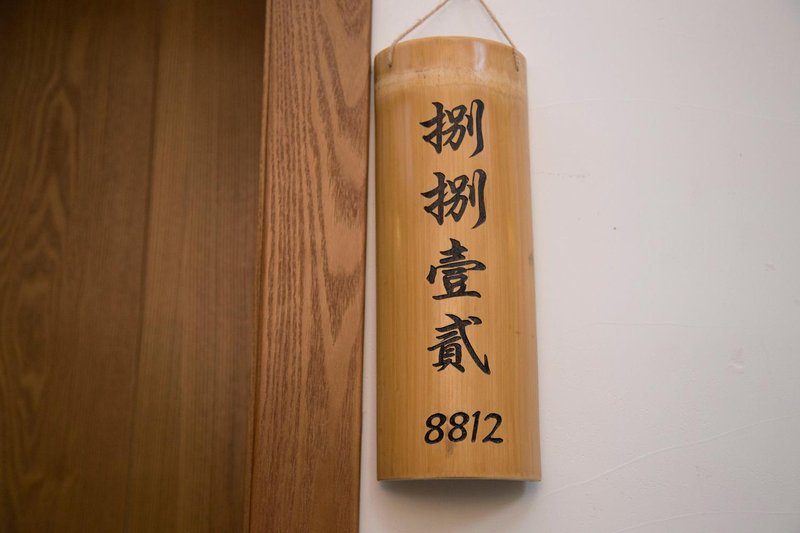 捌捌壹貳
8812